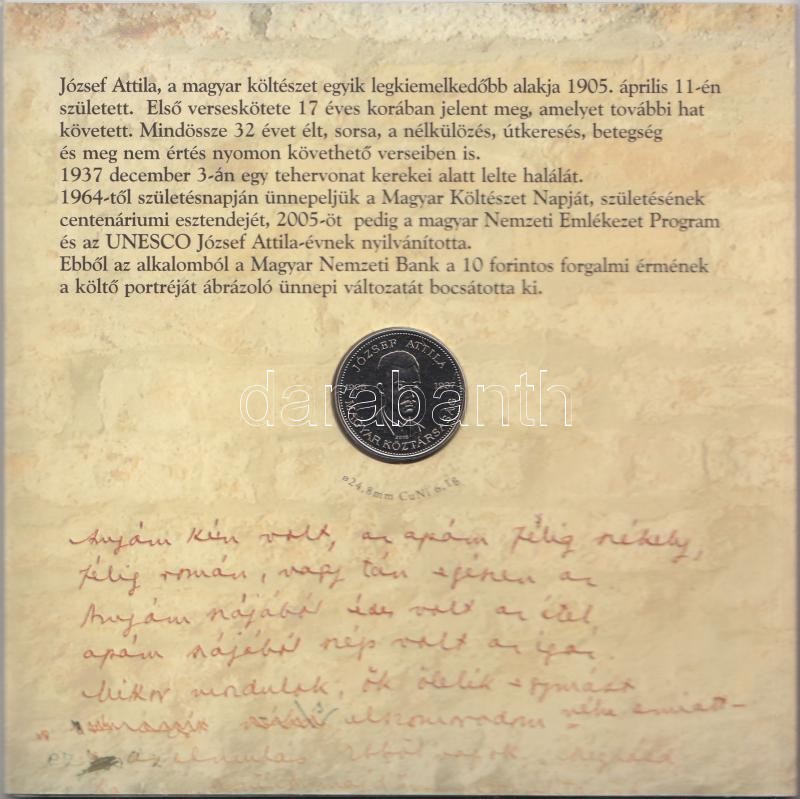 József Attila, a magyar költészet egyik legkiemelkedőbb alakja 1905. április 11-én
született. Első verseskötete 17 éves korában jelent meg, amelyet további hat
követett. Mindössze 32 évet élt, sorsa, a nélkülözés, útkeresés, betegség
és meg nem értés nyomon követhető verseiben is.
1937 december 3-án egy tehervonat kerekei alatt lelte halálát.
1964-től születésnapján ünnepeljük a Magyar Költészet Napját, születésének
centenáriumi esztendejét, 2005-öt pedig a magyar Nemzeti Emlékezet Program
és az UNESCO József Attila-évnek nyilvánította.
Ebből az alkalomból a Magyar Nemzeti Bank a 10 forintos forgalmi érmének
a költő portréját ábrázoló ünnepi változatát bocsátotta ki.
JÓZSEF ATTILA
1905 1937
2005
MAGYAR KÖZTÁRSASÁG
darabanth
ø24,8mm CuNi 6.1g
Anyám kún volt, az apám félig székely,
félig román, vagy tán egészen az.
Anyám szájából édes volt az étel,
apám szájából szép volt az igaz.
Mikor mozdulok, ők ölelik egymást
elszomorodom néha emiatt –
ez az elmulás. Ebből vagyok.